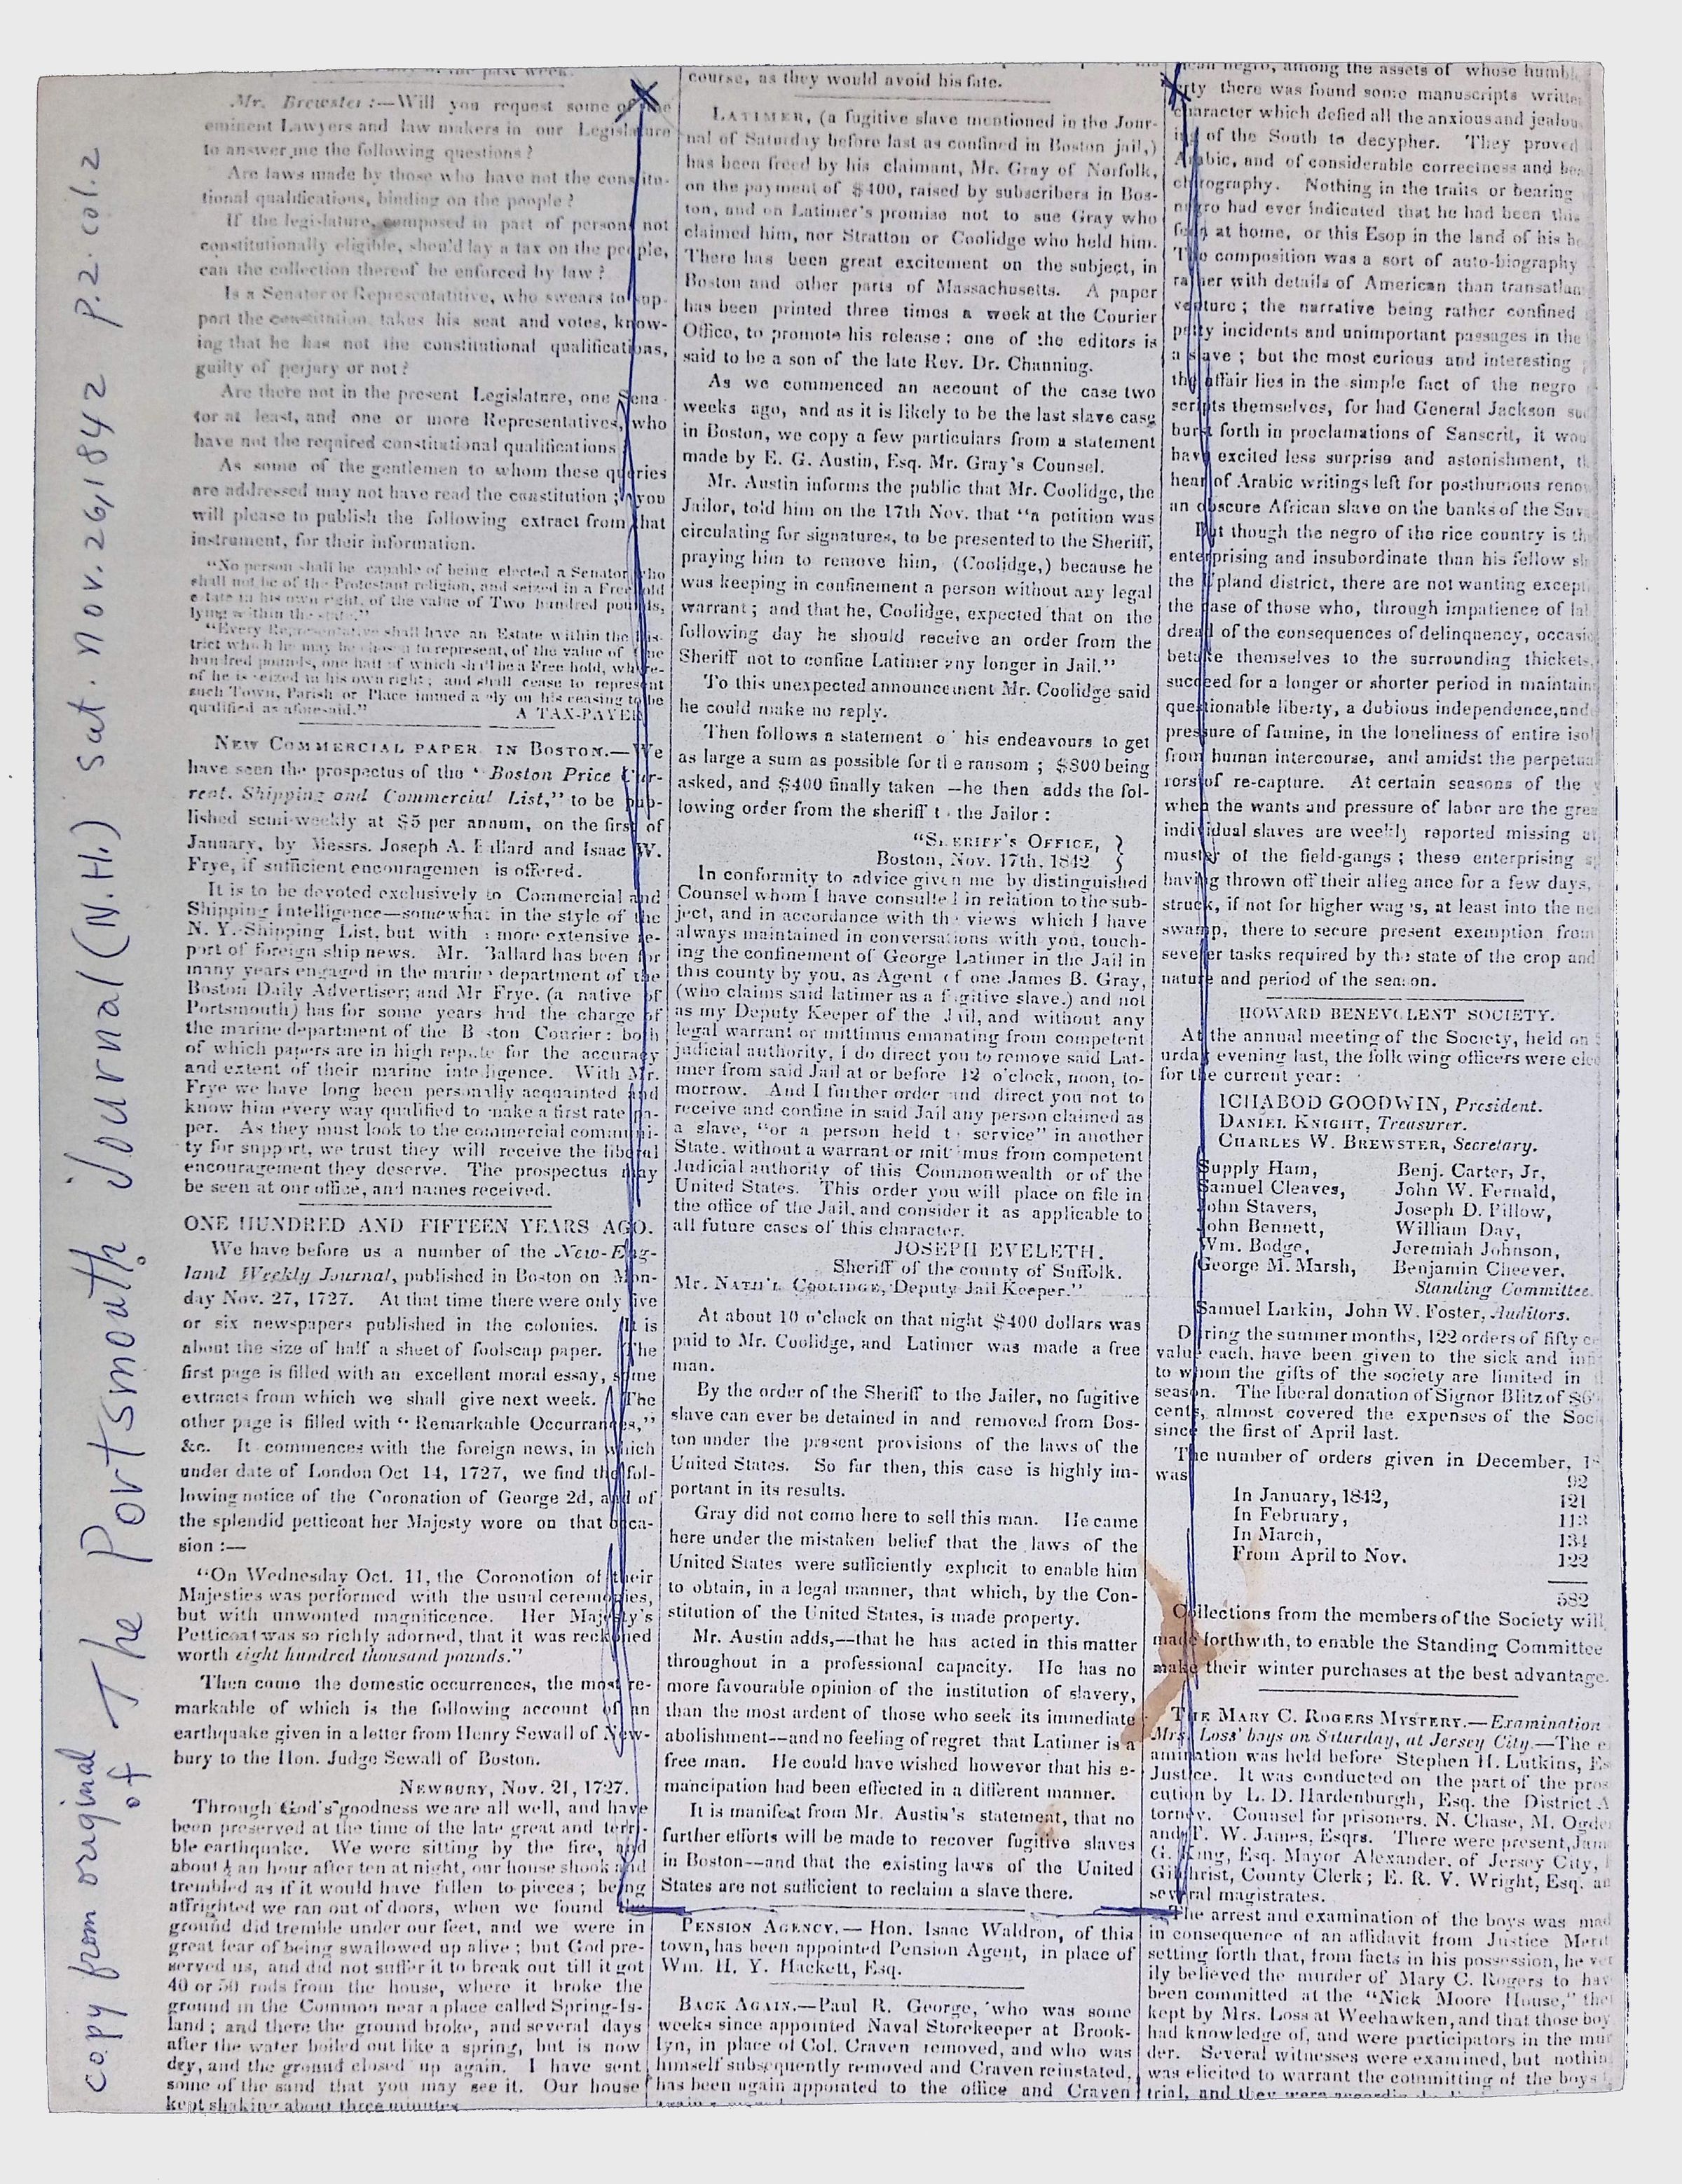 copy from original
of The Portsmouth Journal (N.H.) Sat. Nov. 26, 1842 P.2. col.2
the past week.
Mr. Brewster :—Will you request some of the
eminent Lawyers and law makers in our Legislature
to answer me the following questions?
Are laws made by those who have not the constitu-
tional qualifications, binding on the people?
If the legislature, composed in part of persons not
constitutionally eligible, should lay a tax on the people,
can the collection thereof be enforced by law?
Is a Senator or Representatitive, who swears to sup-
port the constitution, takes his seat and votes, know-
ing that he has not the constitutional qualifications,
guilty of perjury or not?
Are there not in the present Legislature, one Sena-
tor at least, and one or more Representatives, who
have not the required constitutional qualifications
As some of the gentlemen to whom these queries
are addressed may not have read the constitution; you
will please to publish the following extract from that
instrument, for their information.
"No person shall be capable of being elected a Senator who
shall not be of the Protestant religion, and seized in a Freehold
estate in his own right, of the value of Two hundred pounds,
lying within the state."
"Every Representative shall have an Estate within the dis-
trict which he may be chosen to represent, of the value of One
hundred pounds, one half of which shall be a Free hold, where-
of he is seized in his own right; and shall cease to represent
such Town, Parish or Place immediately on his ceasing to be
qualified as aforesaid."
A TAX-PAYER
NEW COMMERCIAL PAPER IN BOSTON.—We
have seen the prospectus of the "Boston Price Cur-
rent, Shipping and Commercial List," to be pub-
lished semi-weekly at $5 per annum, on the first of
January, by Messrs. Joseph A. Ballard and Isaac W.
Frye, if sufficient encouragemen is offered.
It is to be devoted exclusively to Commercial and
Shipping Intelligence—somewhat in the style of the
N. Y. Shipping List, but with a more extensive re-
port of foreign ship news. Mr. Ballard has been for
many years engaged in the marine department of the
Boston Daily Advertiser; and Mr Frye, (a native of
Portsmouth) has for some years had the charge of
the marine department of the Boston Courier: both
of which papers are in high repute for the accuracy
and extent of their marine intelligence. With Mr.
Frye we have long been personally acquainted and
know him every way qualified to make a first rate pa-
per. As they must look to the commercial communi-
ty for support, we trust they will receive the liberal
encouragement they deserve. The prospectus may
be seen at our office, and names received.
ONE HUNDRED AND FIFTEEN YEARS AGO.
We have before us a number of the New-Eng-
land Weekly Journal, published in Boston on Mon-
day Nov. 27, 1727. At that time there were only five
or six newspapers published in the colonies. It is
about the size of half a sheet of foolscap paper. The
first page is filled with an excellent moral essay, some
extracts from which we shall give next week. The
other page is filled with "Remarkable Occurrances,"
&c. It commences with the foreign news, in which
under date of London Oct 14, 1727, we find the fol-
lowing notice of the Coronation of George 2d, and of
the splendid petticoat her Majesty wore on that occa-
sion :—
"On Wednesday Oct. 11, the Coronotion of their
Majesties was performed with the usual ceremonies,
but with unwonted magnificence. Her Majesty's
Petticoat was so richly adorned, that it was reckoned
worth eight hundred thousand pounds."
Then come the domestic occurrences, the most re-
markable of which is the following account of an
earthquake given in a letter from Henry Sewall of New-
bury to the Hon. Judge Sewall of Boston.
NEWBURY, Nov. 21, 1727.
Through God's goodness we are all well, and have
been preserved at the time of the late great and terri-
ble earthquake. We were sitting by the fire, and
about ½ an hour after ten at night, our house shook and
trembled as if it would have fallen to pieces; being
affrighted we ran out of doors, when we found the
ground did tremble under our feet, and we were in
great fear of being swallowed up alive; but God pre-
served us, and did not suffer it to break out till it got
40 or 50 rods from the house, where it broke the
ground in the Common near a place called Spring-Is-
land; and there the ground broke, and several days
after the water boiled out like a spring, but is now
dry, and the ground closed up again. I have sent
some of the sand that you may see it. Our house
kept shaking about three minutes
course, as they would avoid his fate.
LATIMER, (a fugitive slave mentioned in the Jour-
nal of Saturday before last as confined in Boston jail,)
has been freed by his claimant, Mr. Gray of Norfolk,
on the payment of $400, raised by subscribers in Bos-
ton, and on Latimer's promise not to sue Gray who
claimed him, nor Stratton or Coolidge who held him.
There has been great excitement on the subject, in
Boston and other parts of Massachusetts. A paper
has been printed three times a week at the Courier
Office, to promote his release: one of the editors is
said to be a son of the late Rev. Dr. Channing.
As we commenced an account of the case two
weeks ago, and as it is likely to be the last slave case
in Boston, we copy a few particulars from a statement
made by E. G. Austin, Esq. Mr. Gray's Counsel.
Mr. Austin informs the public that Mr. Coolidge, the
Jailor, told him on the 17th Nov. that "a petition was
circulating for signatures, to be presented to the Sheriff,
praying him to remove him, (Coolidge,) because he
was keeping in confinement a person without any legal
warrant; and that he, Coolidge, expected that on the
following day he should receive an order from the
Sheriff not to confine Latimer any longer in Jail."
To this unexpected announcement Mr. Coolidge said
he could make no reply.
Then follows a statement of his endeavours to get
as large a sum as possible for the ransom; $800 being
asked, and $400 finally taken —he then adds the fol-
lowing order from the sheriff to the Jailor:
"SHERIFF'S OFFICE, }
Boston, Nov. 17th, 1842 }
In conformity to advice given me by distinguished
Counsel whom I have consulted in relation to the sub-
ject, and in accordance with the views which I have
always maintained in conversations with you, touch-
ing the confinement of George Latimer in the Jail in
this county by you, as Agent of one James B. Gray,
(who claims said latimer as a fugitive slave.) and not
as my Deputy Keeper of the Jail, and without any
legal warrant or mittimus emanating from competent
judicial authority, I do direct you to remove said Lat-
imer from said Jail at or before 12 o'clock, noon, to-
morrow. And I further order and direct you not to
receive and confine in said Jail any person claimed as
a slave, "or a person held to service" in another
State, without a warrant or mittimus from competent
Judicial authority of this Commonwealth or of the
United States. This order you will place on file in
the office of the Jail, and consider it as applicable to
all future cases of this character.
JOSEPH EVELETH.
Sheriff of the county of Suffolk.
Mr. NATH'L COOLIDGE, Deputy Jail Keeper."
At about 10 o'clock on that night $400 dollars was
paid to Mr. Coolidge, and Latimer was made a free
man.
By the order of the Sheriff to the Jailer, no fugitive
slave can ever be detained in and removed from Bos-
ton under the present provisions of the laws of the
United States. So far then, this case is highly im-
portant in its results.
Gray did not come here to sell this man. He came
here under the mistaken belief that the laws of the
United States were sufficiently explicit to enable him
to obtain, in a legal manner, that which, by the Con-
stitution of the United States, is made property.
Mr. Austin adds,—that he has acted in this matter
throughout in a professional capacity. He has no
more favourable opinion of the institution of slavery,
than the most ardent of those who seek its immediate
abolishment—and no feeling of regret that Latimer is a
free man. He could have wished however that his e-
mancipation had been effected in a different manner.
It is manifest from Mr. Austin's statement, that no
further efforts will be made to recover fugitive slaves
in Boston—and that the existing laws of the United
States are not sufficient to reclaim a slave there.
PENSION AGENCY.— Hon. Isaac Waldron, of this
town, has been appointed Pension Agent, in place of
Wm. H. Y. Hackett, Esq.
BACK AGAIN.—Paul R. George, who was some
weeks since appointed Naval Storekeeper at Brook-
lyn, in place of Col. Craven removed, and who was
himself subsequently removed and Craven reinstated,
has been again appointed to the office and Craven
negro, among the assets of whose humbl
rty there was found some manuscripts writte
character which defied all the anxious and jealou
of the South to decypher. They proved
Arabic, and of considerable correctness and bea
chirography. Nothing in the traits or bearing
negro had ever indicated that he had been this
at home, or this Esop in the land of his
The composition was a sort of auto-biography
rather with details of American than transatlan
venture; the narrative being rather confined
petty incidents and unimportant passages in the
a slave; but the most curious and interesting
the affair lies in the simple fact of the negro
scripts themselves, for had General Jackson su
burst forth in proclamations of Sanscrit, it wou
have excited less surprise and astonishment, t
hear of Arabic writings left for posthumous reno
an obscure African slave on the banks of the Sav
But though the negro of the rice country is th
enterprising and insubordinate than his fellow sl
the Upland district, there are not wanting except
the case of those who, through impatience of la
dread of the consequences of delinquency, occasi
betake themselves to the surrounding thickets,
succeed for a longer or shorter period in maintain
questionable liberty, a dubious independence, and
pressure of famine, in the loneliness of entire isol
from human intercourse, and amidst the perpetua
rors of re-capture. At certain seasons of the
when the wants and pressure of labor are the grea
individual slaves are weekly reported missing at
muster of the field-gangs; these enterprising
having thrown off their allegiance for a few days,
struck, if not for higher wages, at least into the ne
swamp, there to secure present exemption from
severer tasks required by the state of the crop and
nature and period of the season.
HOWARD BENEVOLENT SOCIETY.
At the annual meeting of the Society, held on S
urday evening last, the following officers were elec
for the current year:
ICHABOD GOODWIN, President.
DANIEL KNIGHT, Treasurer.
CHARLES W. BREWSTER, Secretary.
Supply Ham, Benj. Carter, Jr,
Samuel Cleaves, John W. Fernald,
John Stavers, Joseph D. Pillow,
John Bennett, William Day,
Wm. Bodge, Jeremiah Johnson,
George M. Marsh, Benjamin Cheever,
Standing Committee.
Samuel Larkin, John W. Foster, Auditors.
During the summer months, 122 orders of fifty ce
value each, have been given to the sick and infi
to whom the gifts of the society are limited in
season. The liberal donation of Signor Blitz of $6
cents, almost covered the expenses of the Soci
since the first of April last.
The number of orders given in December, 1
was 92
In January, 1842, 121
In February, 113
In March, 134
From April to Nov. 122
582
Collections from the members of the Society will
made forthwith, to enable the Standing Committee
make their winter purchases at the best advantage.
THE MARY C. ROGERS MYSTERY.—Examination
Mrs. Loss' boys on Saturday, at Jersey City.—The e
amination was held before Stephen H. Lutkins, Es
Justice. It was conducted on the part of the pros
cution by L. D. Hardenburgh, Esq. the District A
torney. Counsel for prisoners, N. Chase, M. Ogde
and T. W. James, Esqrs. There were present, Jam
G. King, Esq. Mayor Alexander, of Jersey City,
Gilchrist, County Clerk; E. R. V. Wright, Esq. an
several magistrates.
The arrest and examination of the boys was mad
in consequence of an affidavit from Justice Merit
setting forth that, from facts in his possession, he ver
ily believed the murder of Mary C. Rogers to hav
been committed at the "Nick Moore House," the
kept by Mrs. Loss at Weehawken, and that those boy
had knowledge of, and were participators in the mur
der. Several witnesses were examined, but nothin
was elicited to warrant the committing of the boys
trial, and they were